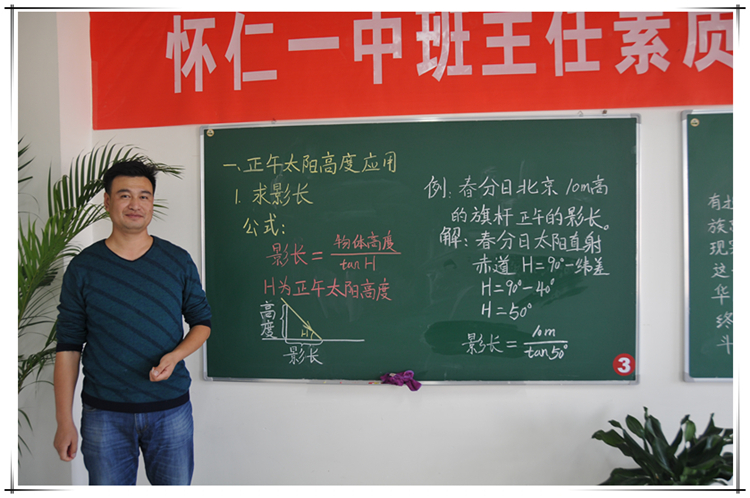 怀仁一中班主任素质
一、正午太阳高度应用
1. 求影长
公式:
影长 = 物体高度/tan H
H为正午太阳高度
高度
H
影长
例: 春分日北京10m高
的旗杆正午的影长。
解: 春分日太阳直射
赤道 H=90°-纬差
H=90°-40°
H=50°
影长 = 10m/tan50°
3
族
现
这
华
终
斗